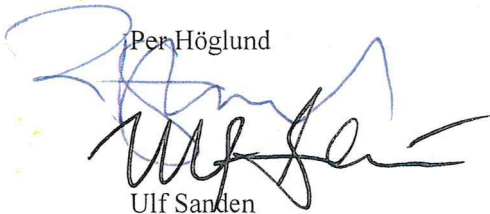 Per Höglund
Ulf Sanden